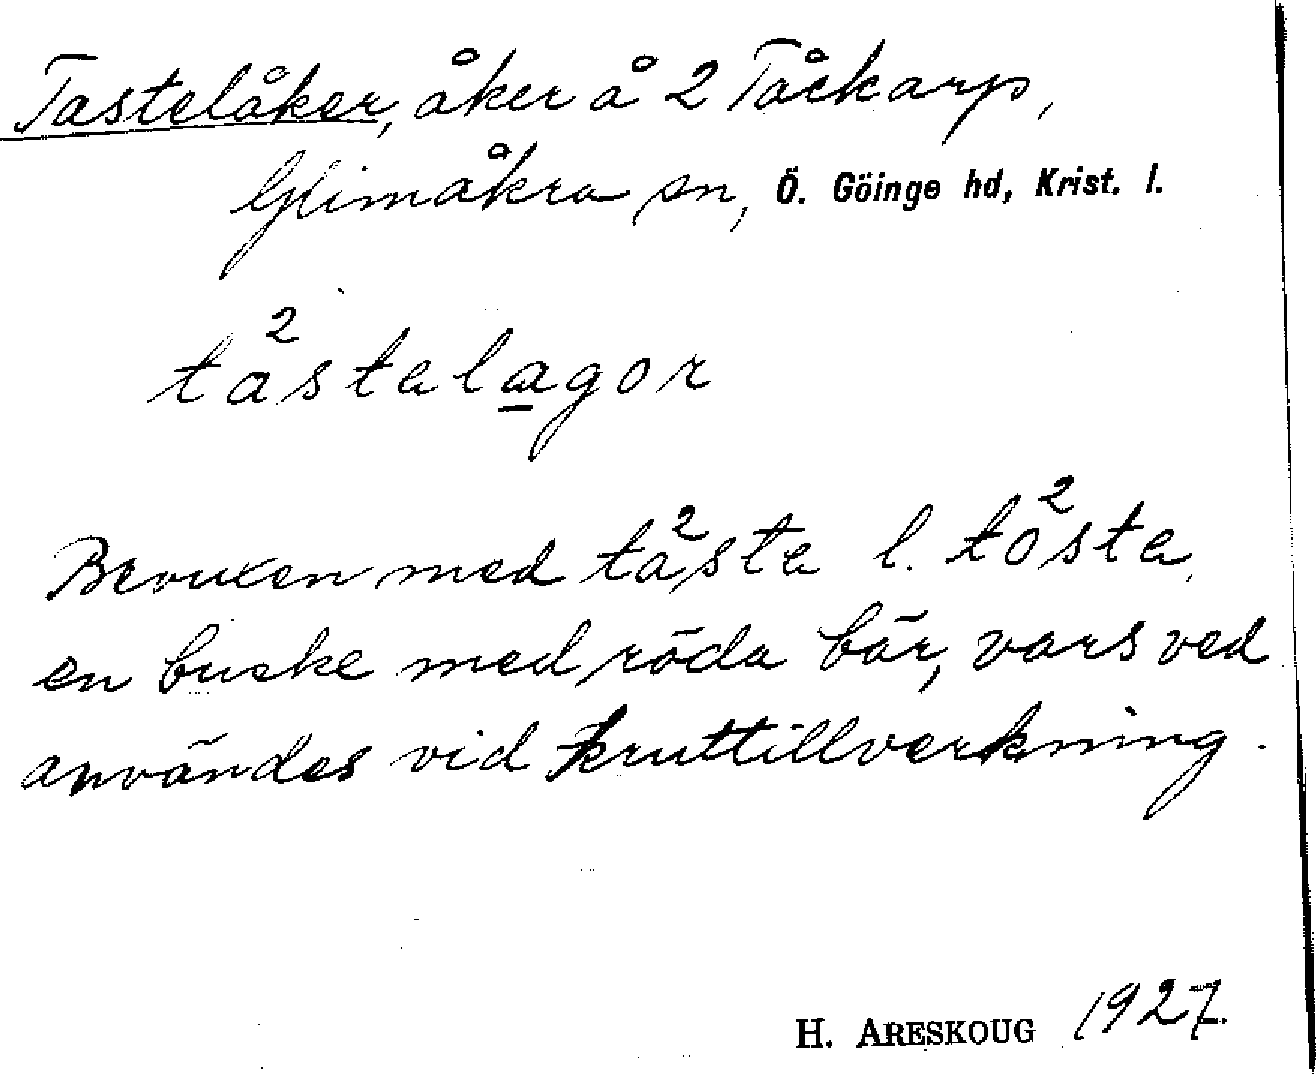 Tastelåker, åker å 2 Tåckarp,
Glimåkra sn, Ö. Göinge hd, Krist. l.
ta²stalagor
Bevuxen med ta²sta l. to²sta,
en buske med röda bär, vars ved
användes vid kruttillverkning.
H. ARESKOUG 1927.